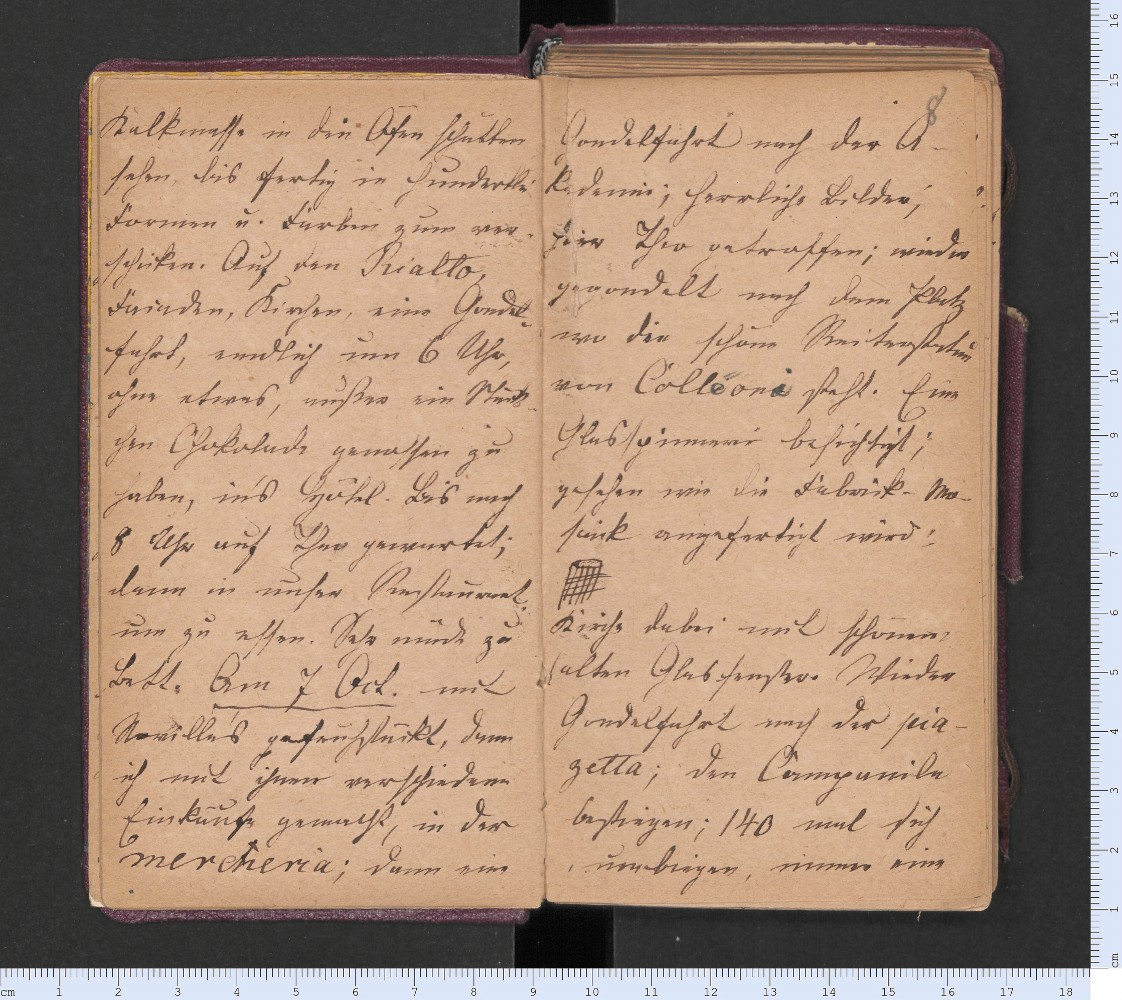 Kalkmasse in den Ofen schütten
sehen, bis fertig in hunderterlei
Formen u. Farben zum ver-
schicken. Auf den Rialto,
Frieden, Kirchen, eine Gondel-
fahrt, endlich um 6 Uhr,
ohne etwas, außer ein Stück-
chen Chokolade genossen zu
haben, in's Hôtel. Bis nach
8 Uhr auf Theo gewartet;
dann in unser Restaurant
um zu essen. Sehr müde zu
Bett. Am 7 Oct. mit
Neville's gefrühstückt, dann
ich mit ihnen verschiedene
Einkäufe gemacht, in der
mercheria; dann eine
8
Gondelfahrt nach der A-
kademie; herrliche Bilder;
hier Theo getroffen; wieder
gegondelt nach dem Platz
wo die schöne Reiterstatue
von Colleoni steht. Eine
Glasspinnerei besichtigt;
gesehen wie die Fabrik-Mo-
saik angefertigt wird;
Kirche dabei mit schönen,
alten Glasfenster. Wieder
Gondelfahrt nach der pia-
zetta; den Campanile
bestiegen; 140 mal sich
umbiegen, immer eine
16
15
14
13
12
11
10
9
8
7
6
5
4
3
2
1
cm
cm 1 2 3 4 5 6 7 8 9 10 11 12 13 14 15 16 17 18